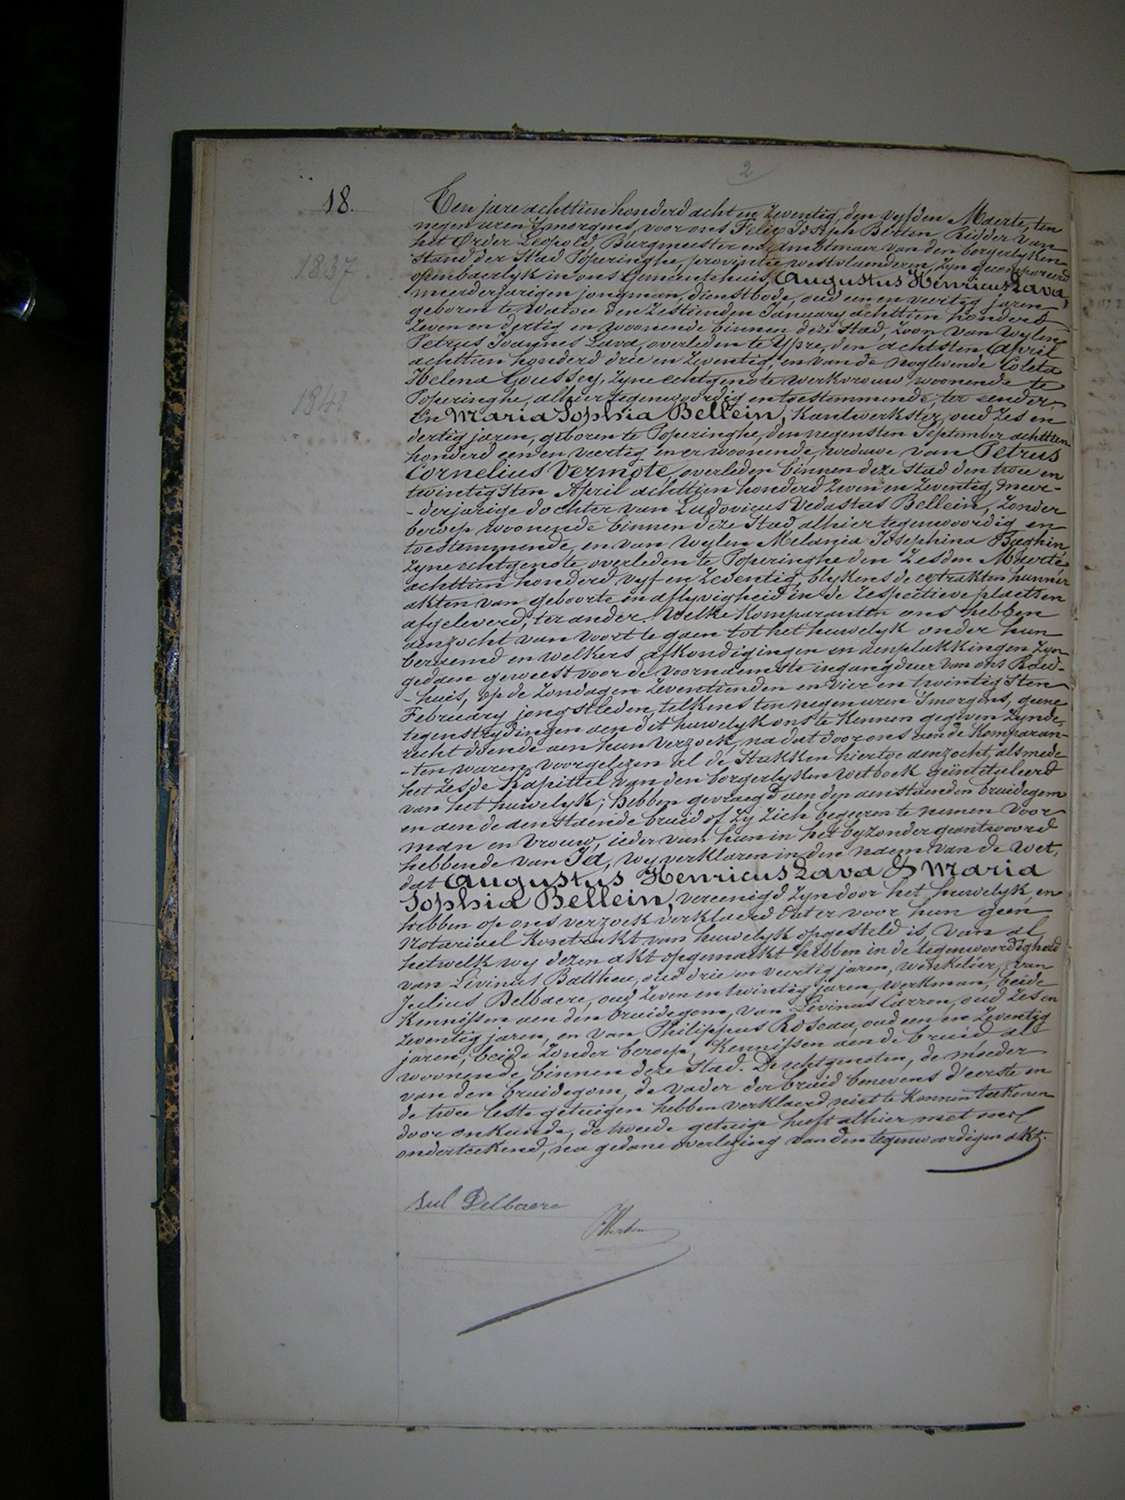 2
18.
Ten jare achttien honderd acht en Zeventig, den vyfden Maerte, ten
negen uren Smorgens, voor ons Felix Joseph Berten Ridder van
het Order Leopold, Burgmeester en Ambtenaar van den borgerlyken
1837
Stand der Stad Poperinghe, provintie westvlaenderen, zyn gecompareerd
openbaerlyk in ons Gemeentehuis, Augustus Henricus Lava,
meerderjarigen jongman, dienstbode, oud een en veertig jaren
geboren te Watou den Zestienden January achttien honderd
Zeven en dertig en woonende binnen deze Stad, Zoon van wylen
Petrus Joannes Lava, overleden te Ypre, den achtsten April
achttien honderd drie en Zeventig, en van de noglevende Coleta
Helena Coussey, Zyne echtgenote, werkvrouw, woonende te
1841
Poperinghe, alhier tegenwoordig en toestemmende, ter eender.
En Maria Sophia Bellein, kantwerkster, oud Zes en
dertig jaren, geboren te Poperinghe, den negensten September achttien
honderd een en veertig en er woonende, weduwe van Petrus
Cornelius Vermote, overleden binnen deze Stad den twee en
twintigsten April achttien honderd Zeven en Zeventig, meer-
-derjarige dochter van Ludovicus Vedastus Bellein, Zonder
beroep, woonende binnen deze Stad, alhier tegenwoordig en
toestemmende, en van wylen Melania Josephina Baeghin
Zyne echtgenote, overleden te Poperinghe den Zesden Maerte
achttien honderd vyf en Zeventig, blykens de extrakten hunner
akten van geboorte en aflyvigheid in de respectieve plaetsen
afgeleverd, ter ander. Welke Komparanten ons hebben
aenzocht van voort te gaen tot het huwelyk onder hun
beraemd en welkers afkondigingen en aenplakkingen Zyn
gedaen geweest voor de voornaemste ingangdeur van ons Raed-
-huis, op de Zondagen Zeventienden en vier en twintigsten
February jongstleden, telkens ten negen uren Smorgens, geene
tegenstrydingen aen dit huwelyk ons te Kennen gegeven Zynde,
recht doende aen hun verzoek, na dat door ons aen de Komparan-
-ten waren voorgelezen al de Stukken hiertoe aenzocht, alsmede
het Zesde Kapittel van den borgerlyken Wetboek geïntituleerd
van het huwelyk; hebben gevraegd aen den aenstaenden bruidegom
en aen de aenstaende bruid of Zy Zich begeeren te nemen voor
man en Vrouw, ieder van hun in het byzonder geantwoord
hebbende van Ja, Wy verklaren in den naem van de Wet,
dat Augustus Henricus Lava & Maria
Sophia Bellein, vereenigd Zyn door het huwelyk, en
hebben op ons verzoek verklaerd dat er voor hun geen
Notarieel Kontrakt van huwelyk opgesteld is, van al
hetwelk wy dezen akt opgemaekt hebben in de tegenwoordigheid
van Livinus Batteu, oud drie en veertig jaren, winkelier, van
Julius Delbaere, oud Zeven en twintig jaren, werkman, beide
Kennissen aen den bruidegom, van Livinus Carron, oud Zes en
Zeventig jaren, en van Philippus Roseau, oud een en Zeventig
jaren, beide Zonder beroep, Kennissen aen de bruid al
woonende binnen deze Stad. De echtgenoten, de moeder
van den bruidegom, de vader der bruid benevens d'eerste en
de twee leste getuigen hebben verklaerd niet te Konnen teekenen
door onkunde, de tweede getuige heeft alhier met ons
onderteekend, na gedane overlezing van den tegenwoordigen akt.
Jul Delbaere